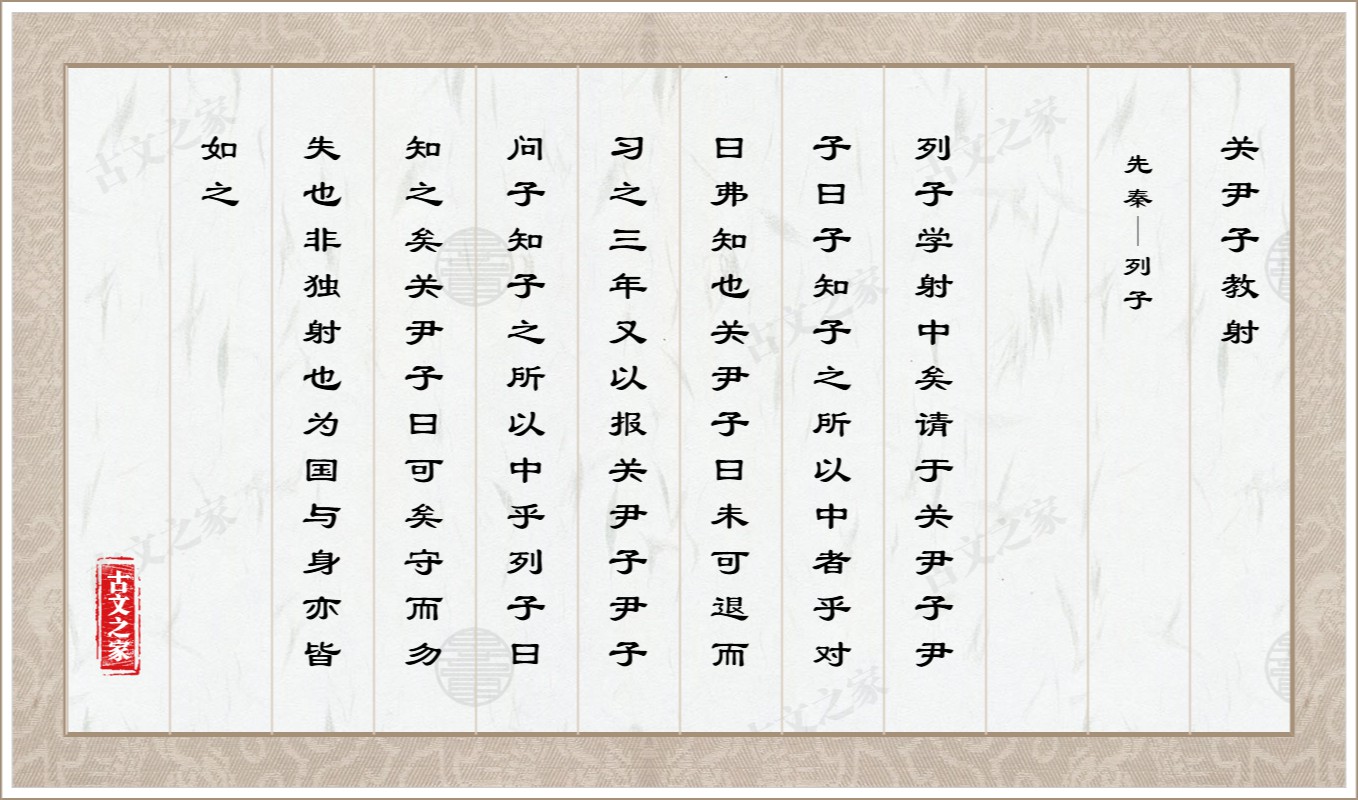 关尹子教射
先秦—列子
列子学射中矣请于关尹子尹
子曰子知子之所以中者乎对
曰弗知也关尹子曰未可退而
习之三年又以报关尹子尹子
问子知子之所以中乎列子曰
知之矣关尹子曰可矣守而勿
失也非独射也为国与身亦皆
如之
古文之家